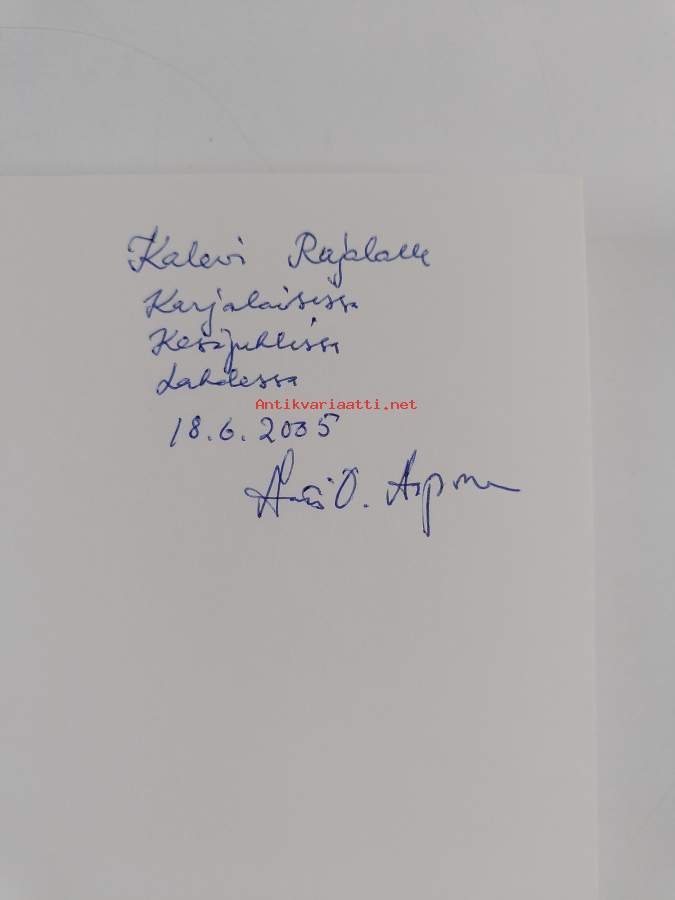 Kalevi Rajalalle
Karjalaisissa
Kesäjuhlissa
Lahdessa
Antikvariaatti.net
18.6.2005
O.